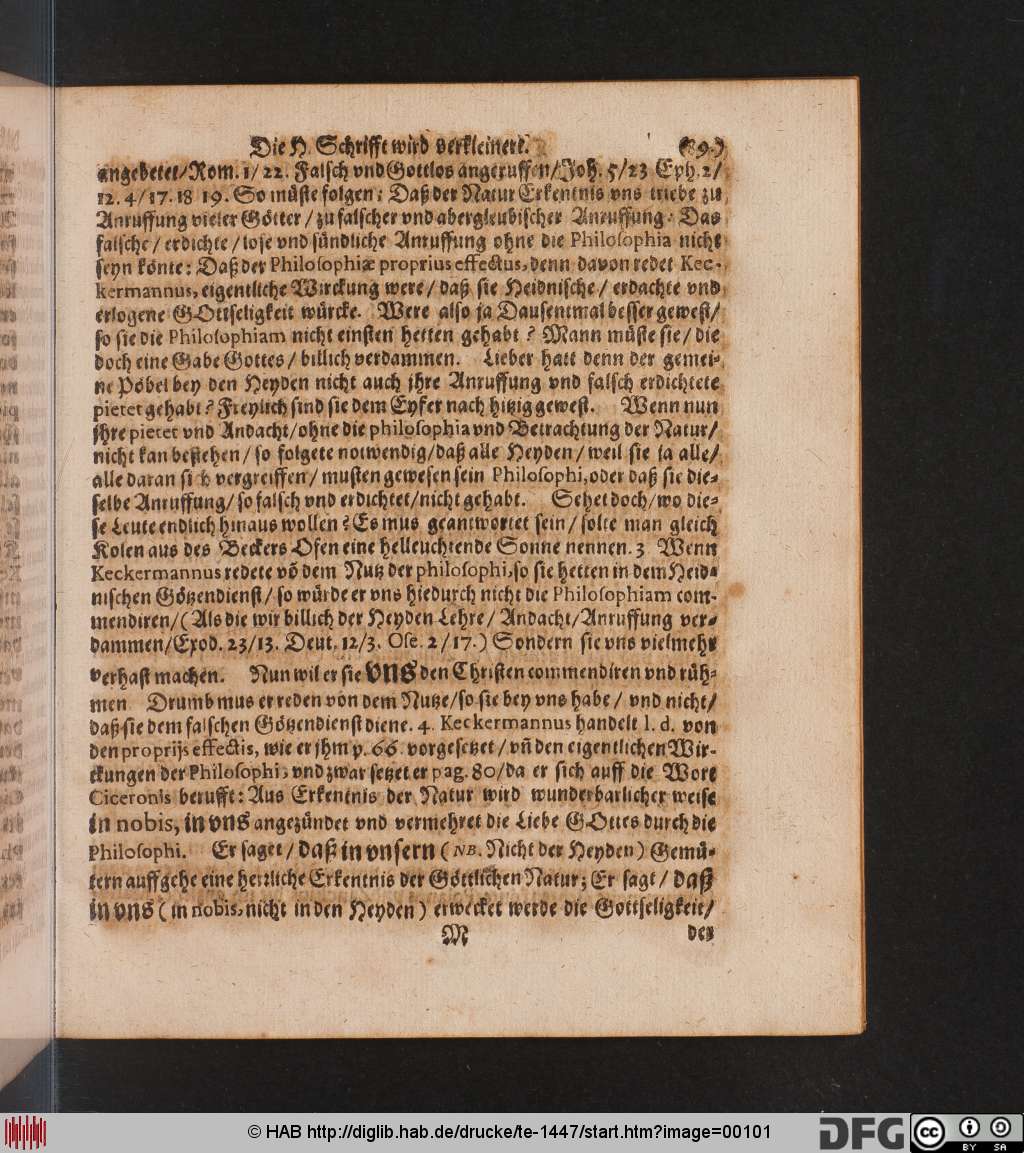 Die H. Schrifft wird verkleinert. 89.)
angebetet/Rom. 1/ 22. Falsch vnd Gottlos angeruffen/Joh. 5/23 Eph. 2/
12. 4/17. 18 19. So müste folgen: Daß der Natur Erkentnis vns triebe zu
Anruffung vieler Götter / zu falscher vnd abergleubischer Anruffung. Das
falsche / erdichte / lose vnd sündliche Anruffung ohne die Philosophia nicht
seyn könte: Daß der Philosophiæ proprius effectus, denn davon redet Kec-
kermannus, eigentliche Wirckung were / daß sie Heidnische / erdachte vnd
erlogene GOttseligkeit würcke. Were also ja Dausentmal besser gewest/
so sie die Philosophiam nicht einsten hetten gehabt ? Mann müste sie / die
doch eine Gabe Gottes / billich verdammen. Lieber hatt denn der gemei-
ne Pöbel bey den Heyden nicht auch jhre Anruffung vnd falsch erdichtete
pietet gehabt ? Freylich sind sie dem Eyfer nach hitzig gewest. Wenn nun
jhre pietet vnd Andacht/ohne die philosophia vnd Betrachtung der Natur/
nicht kan bestehen / so folgete notwendig/daß alle Heyden / weil sie ja alle/
alle daran sich vergreiffen / musten gewesen sein Philosophi, oder daß sie die-
selbe Anruffung/ so falsch vnd erdichtet/nicht gehabt. Sehet doch/wo die-
se Leute endlich hinaus wollen ? Es mus geantwortet sein / solte man gleich
Kolen aus des Beckers Ofen eine helleuchtende Sonne nennen. 3 Wenn
Keckermannus redete võ dem Nutz der philosophi, so sie hetten in dem Heid-
nischen Götzendienst / so würde er vns hiedurch nicht die Philosophiam com-
mendiren/ (Als die wir billich der Heyden Lehre / Andacht/Anruffung ver-
dammen/Exod. 23/13. Deut. 12/3. Ose. 2 / 17.) Sondern sie vns vielmehr
verhast machen. Nun wil er sie vns den Christen commendiren vnd rüh-
men Drumb mus er reden von dem Nutze/so sie bey vns habe / vnd nicht/
daß sie dem falschen Götzendienst diene. 4. Keckermannus handelt l. d. von
den proprijs effectis, wie er jhm p. 66. vorgesetzet / vñ den eigentlichen Wir-
ckungen der Philosophi, vnd zwar setzet er pag. 80/da er sich auff die Wort
Ciceronis berufft: Aus Erkentnis der Natur wird wunderbarlicher weise
in nobis, in vns angezündet vnd vermehret die Liebe GOttes durch die
Philosophi. Er saget / daß in vnsern (NB. Nicht der Heyden) Gemü-
tern auffgehe eine herrliche Erkentnis der Göttlichen Natur; Er sagt / daß
in vns (in nobis, nicht in den Heyden) erwecket werde die Gottseligkeit/
M der
© HAB http://diglib.hab.de/drucke/te-1447/start.htm?image=00101
DFG cc BY SA